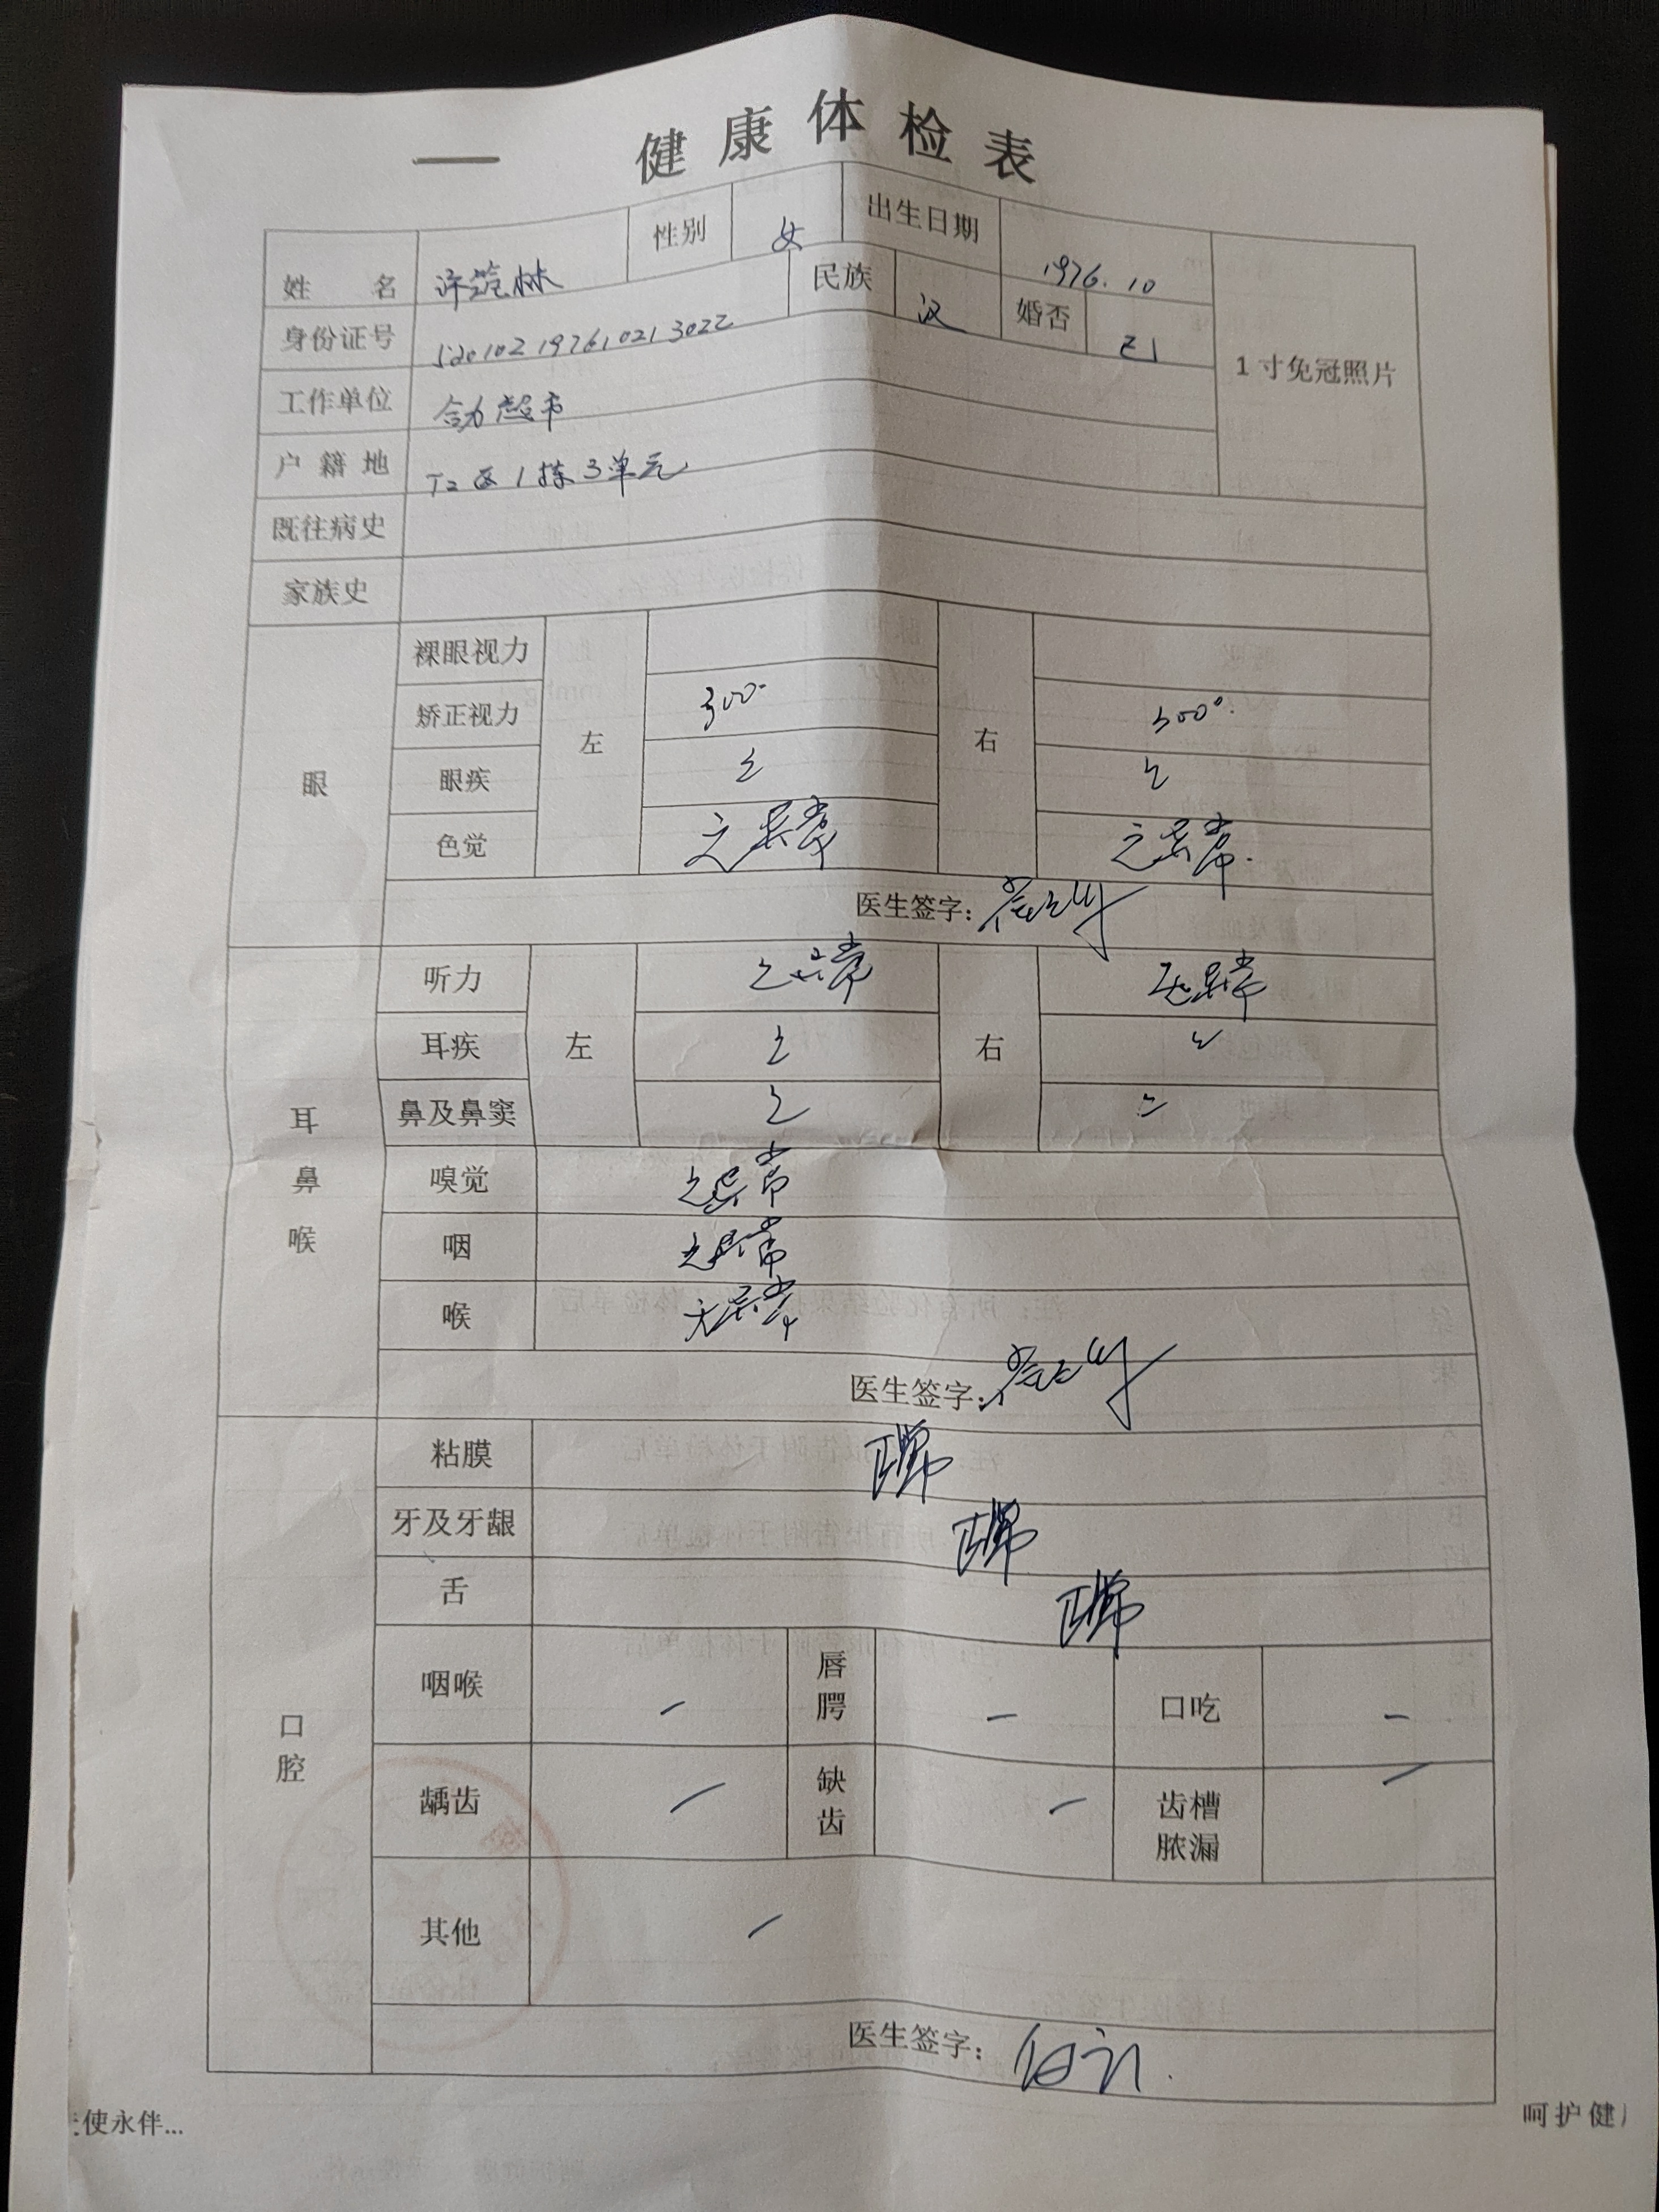 健康体检表
姓 名 性别 女 出生日期 1976.10
身份证号 520102197610213022 民族 汉 婚否 已
1寸免冠照片
工作单位 合力超市
户籍地 T2区1栋3单元
既往病史
家族史
眼
裸眼视力
矫正视力 左 300° 右 300°.
眼疾 无 无
色觉 无异常 无异常.
医生签字:
耳鼻喉
听力 无异常 无异常
耳疾 左 无 右 无
鼻及鼻窦 无 无
嗅觉 无异常
咽 无异常
喉 无异常
医生签字:
口腔
粘膜 正常
牙及牙龈 正常
舌 正常
咽喉 — 唇腭 — 口吃 —
龋齿 — 缺齿 — 齿槽脓漏 —
其他 —
医生签字:
使永伴...
呵护健